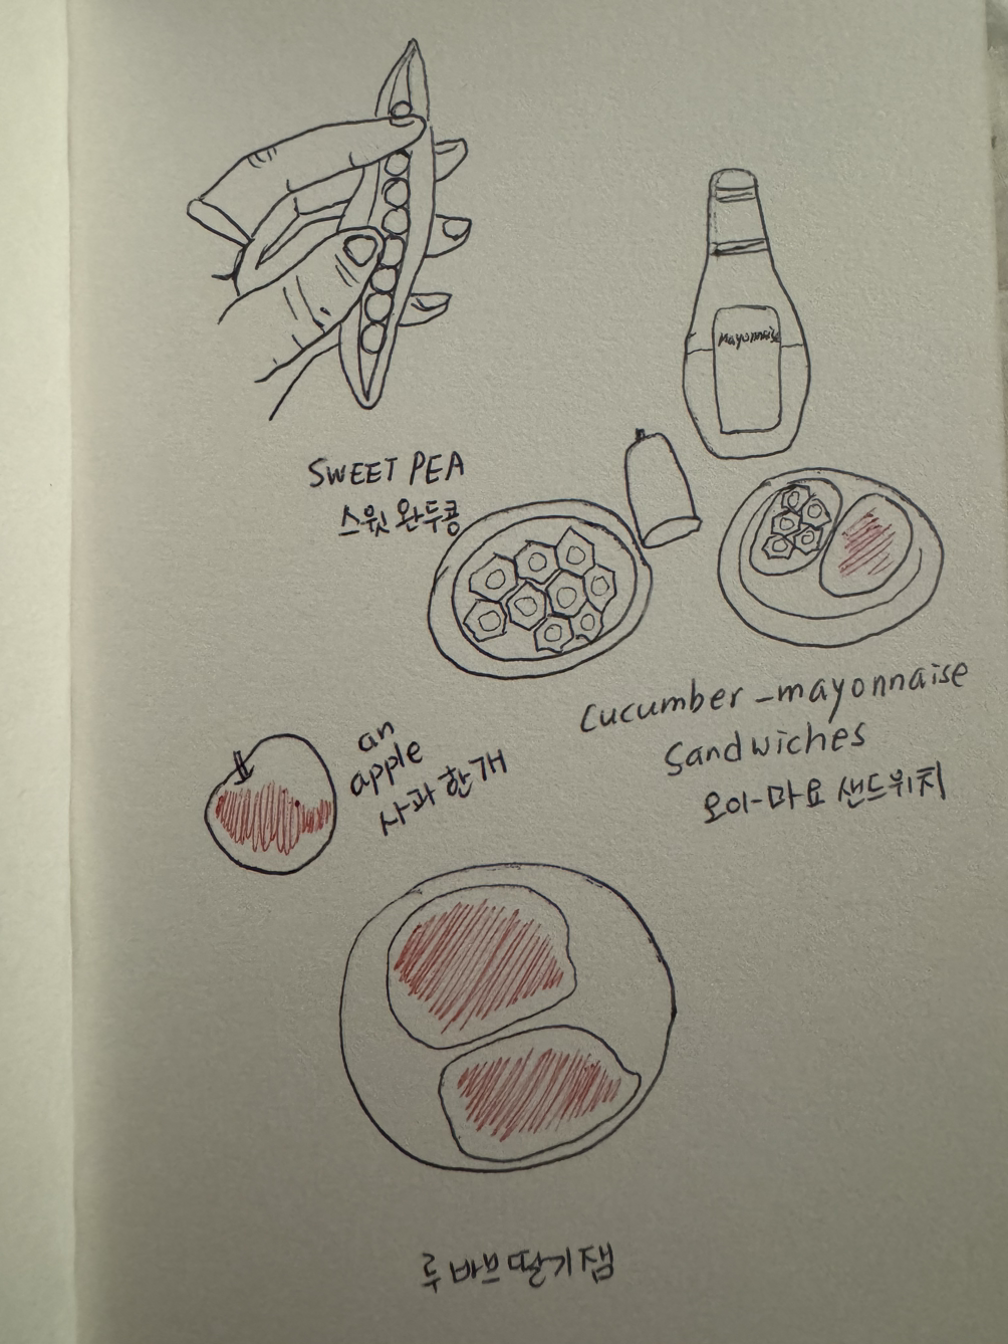 SWEET PEA
스윗 완두콩
Mayonnaise
Cucumber-mayonnaise
Sandwiches
오이-마요 샌드위치
an
apple
사과 한 개
루바브 딸기잼